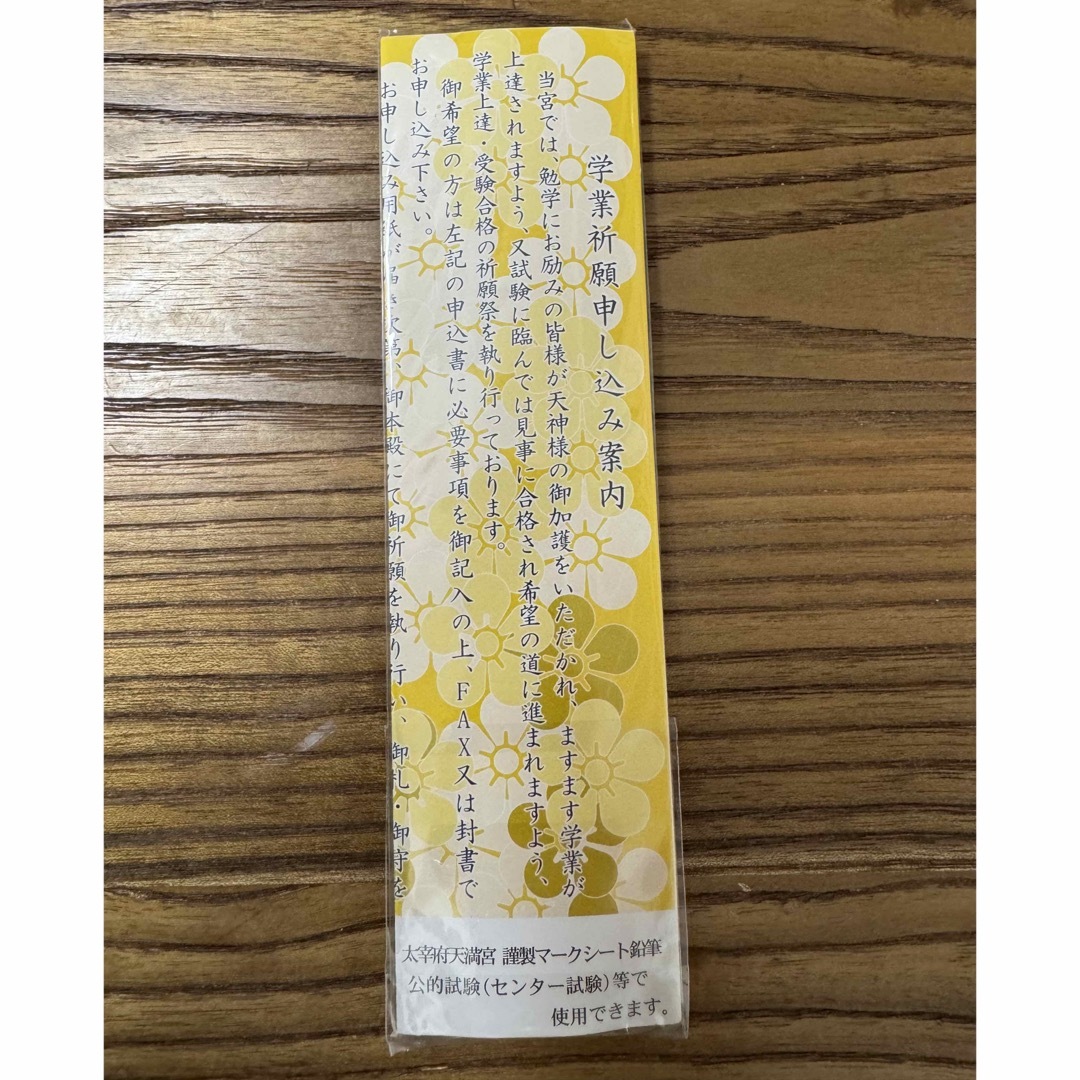 学業祈願申し込み案内
当宮では、勉学にお励みの皆様が天神様の御加護をいただかれ、ますます学業が
上達されますよう、又試験に臨んでは見事に合格され希望の道に進まれますよう、
学業上達・受験合格の祈願祭を執り行っております。
御希望の方は左記の申込書に必要事項を御記入の上、FAX又は封書で
お申し込み下さい。
お申し込み用紙が届き次第、御本殿にて御祈願を執り行い、御札・御守を
太宰府天満宮 謹製マークシート鉛筆
公的試験(センター試験)等で
使用できます。